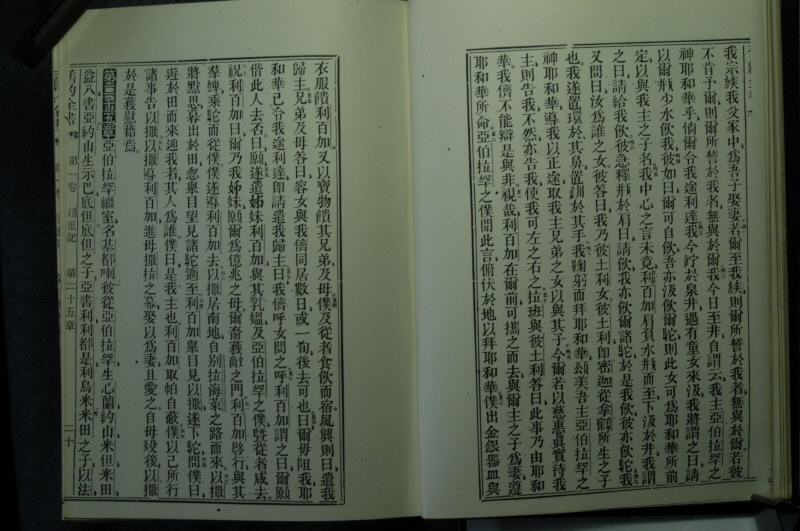 我宗族我父家中爲吾子娶妻若爾至我族則爾所誓於我者無與於爾若彼
不肯予爾則爾所誓於我者無與於爾我今日至井自謂云我主亞伯拉罕之
神耶和華乎倘爾令我途利達我今竚於泉井遇有童女來汲我將謂之曰請
以爾瓶少水飲我彼如曰爾可自飲吾亦汲飲爾駝則此女可爲耶和華所前
定以與我主之子者我中心之言未竟利百加肩負水瓶而至下汲於井我謂
之曰請給我飲彼急釋瓶於肩曰請飲我亦飲爾諸駝於是我飲彼亦飲駝我
又問曰汝爲誰之女彼答曰我乃彼土利女彼土利卽密迦從拿鶴所生之子
也我遂置環於其鼻置釧於其手我鞠躬而拜耶和華頌美吾主亞伯拉罕之
神耶和華導我以正途取我主兄弟之女以與其子今爾若以慈惠眞實待我
主則告我不然亦告我使我可左之右之拉班與彼土利答曰此事乃由耶和
華我儕不能辯是與非視哉利百加在爾前可攜之而去與爾主之子爲妻遵
耶和華所命亞伯拉罕之僕聞此言俯伏於地以拜耶和華僕出金銀器皿與
衣服饋利百加又以寶物饋其兄弟及母僕及從者食飲而宿夙興則曰遣我
歸主兄弟及母答曰容女與我儕同居數日或一旬後去可也曰爾毋阻我耶
和華已令我途利達卽請遣我歸主曰我儕呼女問之呼利百加謂之曰爾願
偕此人去否曰願遂遣姊妹利百加與其乳媼及亞伯拉罕之僕曁從者咸去
祝利百加曰爾乃我姊妹願爾爲億兆之母爾裔獲敵之門利百加啓行與其
羣婢乘駝而從僕僕遂導利百加去以撒居南地自別拉海萊之路而來以撒
將默思暮出於田忽舉目望見諸駝適至利百加舉目見以撒遂下駝問僕曰
遊於田而來迎我者其人爲誰僕曰是我主也利百加取帕自蔽僕以己所行
諸事告以撒以撒導利百加進母撒拉之幕娶以爲妻且愛之自母歿後以撒
於是獲慰藉焉
第二十五章亞伯拉罕繼室名基都喇彼從亞伯拉罕生心蘭約山米但米田
益八書亞約山生示巴底但底但之子亞書利利都是利烏米米田之子以法
舊約全書 第一卷 創世記 第二十五章 二十